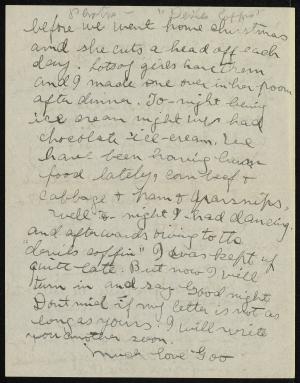 "Devils Coffin"
before we went home Christmas
and she cuts a head off each
day. Lots of girls have them
and I made one over in her room
after dinner. To-night being
ice cream night we had
chocolate ice-cream. We
have been having
food lately, corn beef &
cabbage & ham & parsnips.
Well to-night I had dancing
and afterwards owing to the
"devils coffin" I was kept up
quite late. But now I will
turn in and say Good night
Dont mid if my letter is not as
long as yours. I will write
you another soon.
Much love Goo